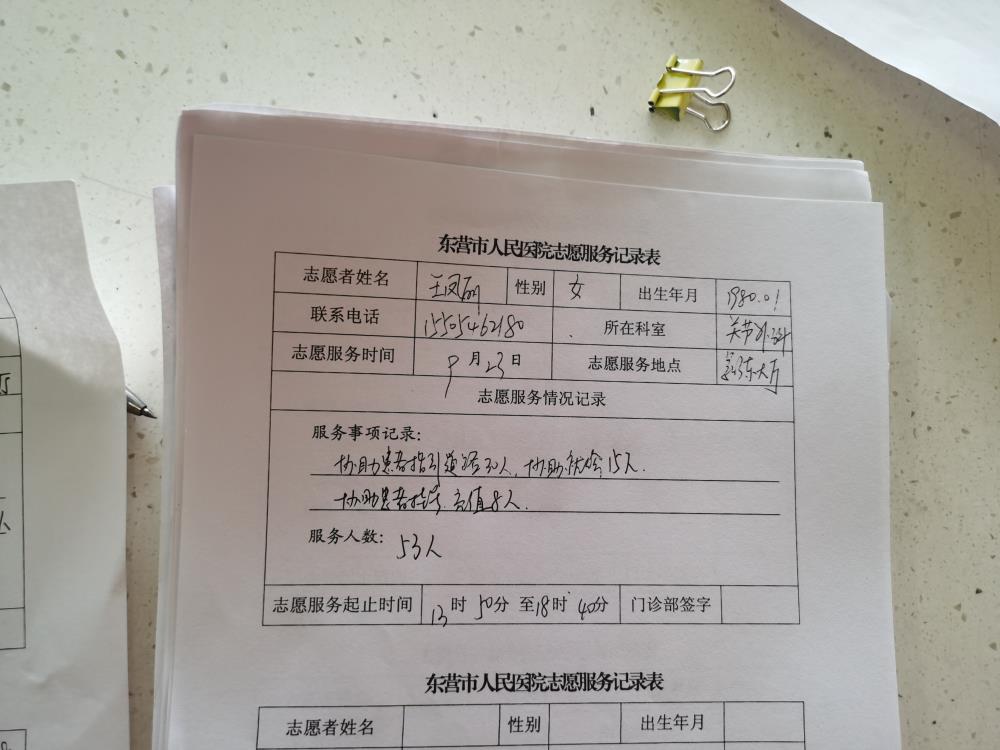 东营市人民医院志愿服务记录表
志愿者姓名 王凤丽 性别 女 出生年月 1980.01
联系电话 15505462180 所在科室 关节外科
志愿服务时间 9月23日 志愿服务地点 大厅
志愿服务情况记录
服务事项记录:
协助患者指引道路30人,协助就诊15人.
协助患者挂号.充值8人.
服务人数: 53人
志愿服务起止时间 13时50分至18时40分 门诊部签字
东营市人民医院志愿服务记录表
志愿者姓名 性别 出生年月